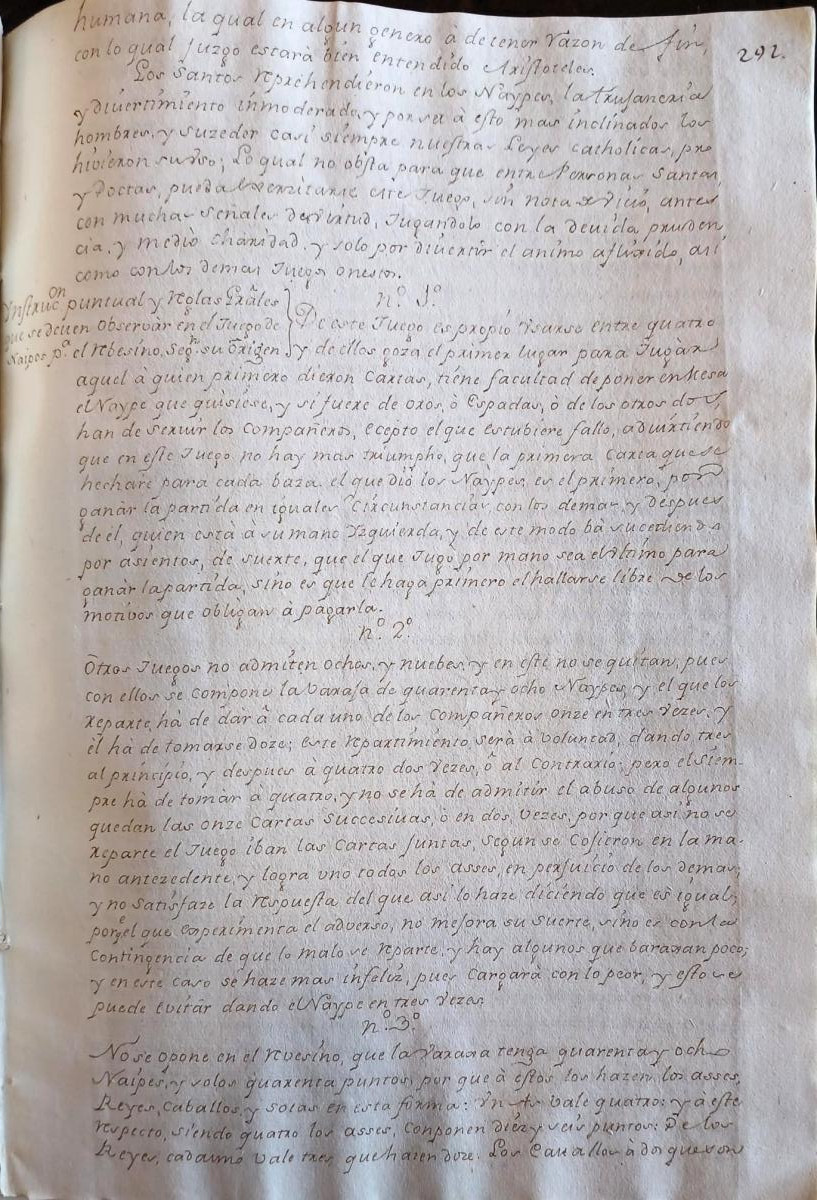 humana, la qual en algun genero à detener razon de fin,
con lo qual juzgo estarà bien entendido Aristoteles.
292.
Los Santos reprehendieron en los Naypes, la truhaneria
y divertimiento inmoderado, y por ser à esto mas inclinados los
hombres, y suzeder casi siempre nuestras Leyes catholicas, pro
hivieron su uso; Lo qual no obsta para que entre Personas Santas,
y Doctas, pueda exerzitarse este Juego, sin nota de vicio, antes
con muchas señales de virtud, Jugandolo con la devida pruden
cia, y medio charidad, y solo por divertir el animo afluxido, asi
como con los demas Juegos onestos.
nº. 1º.
Ynstrucon puntual y reglas Grãles
que se deven observar en el Juego de
Naipes pª. el rebesino, Segn. su Origen
De este Juego es propio usarse entre quatro
y de ellos goza el primer lugar para Jugar
aquel à quien primero dieron Cartas, tiene facultad de poner en Mesa
el Naype que quisiese, y si fuere de oros, ò Espadas, ò de los otros dos,
han de servir los Compañeros, ecepto el que estubiere fallo, advirtiendo
que en este Juego no hay mas triumpho, que la primera Carta que se
hechare para cada baza. el que diò los Naypes, es el primero, por
ganàr la partida en iguales Circunstancias, con los demas, y despues
de èl, quien està à su mano Yzquierda, y de este modo bà sucediendo
por asientos, de suerte, que el que Jugò por mano sea el ultimo para
ganàr la partida, sino es que le haga primero el hallarse libre de los
motivos que obligan à pagarla.
nº. 2º.
Otros Juegos no admiten ochos, y nuebes, y en este no se quitan, pues
con ellos se compone la baraja de quarenta y ocho Naypes, y el que los
reparte, hà de dàr à cada uno de los Compañeros onze en tres vezes, y
èl hà de tomarse doze; este repartimiento serà à voluntad, dando tres
al principio, y despues à quatro dos vezes, ò al Contrario: pero el siem-
pre hà de tomàr à quatro, y no se hà de admitir el abuso de algunos
que dan las onze Cartas Succesivas, ò en dos, vezes, por que asi no se
reparte el Juego iban las Cartas juntas, segun se Cojieron en la ma-
no antezedente, y logra uno todos los asses, en perjuicio de los demas,
y no satisfaze la respuesta del que asi lo haze diciendo que es igual,
porqe el que experimenta el adverso, no mejora su suerte, sino es con la
Contingencia de que lo malo se reparte, y hay algunos que barajan poco;
y en este caso se haze mas infeliz, pues Cargarà con lo peor, y esto se
puede Evitàr dando el Naype en tres vezes.
nº. 3º.
No se opone en el revesino, que la baraja tenga quarenta y ocho
Naipes, y solos quarenta puntos, por que à estos los hazen los asses,
Reyes, Caballos, y sotas en esta forma: Un As vale quatro: y à este
respecto, siendo quatro los asses, Conponen diez y seis puntos: De los
Reyes, cada uno vale tres, que hazen doze. Los Cavallos à dos que son